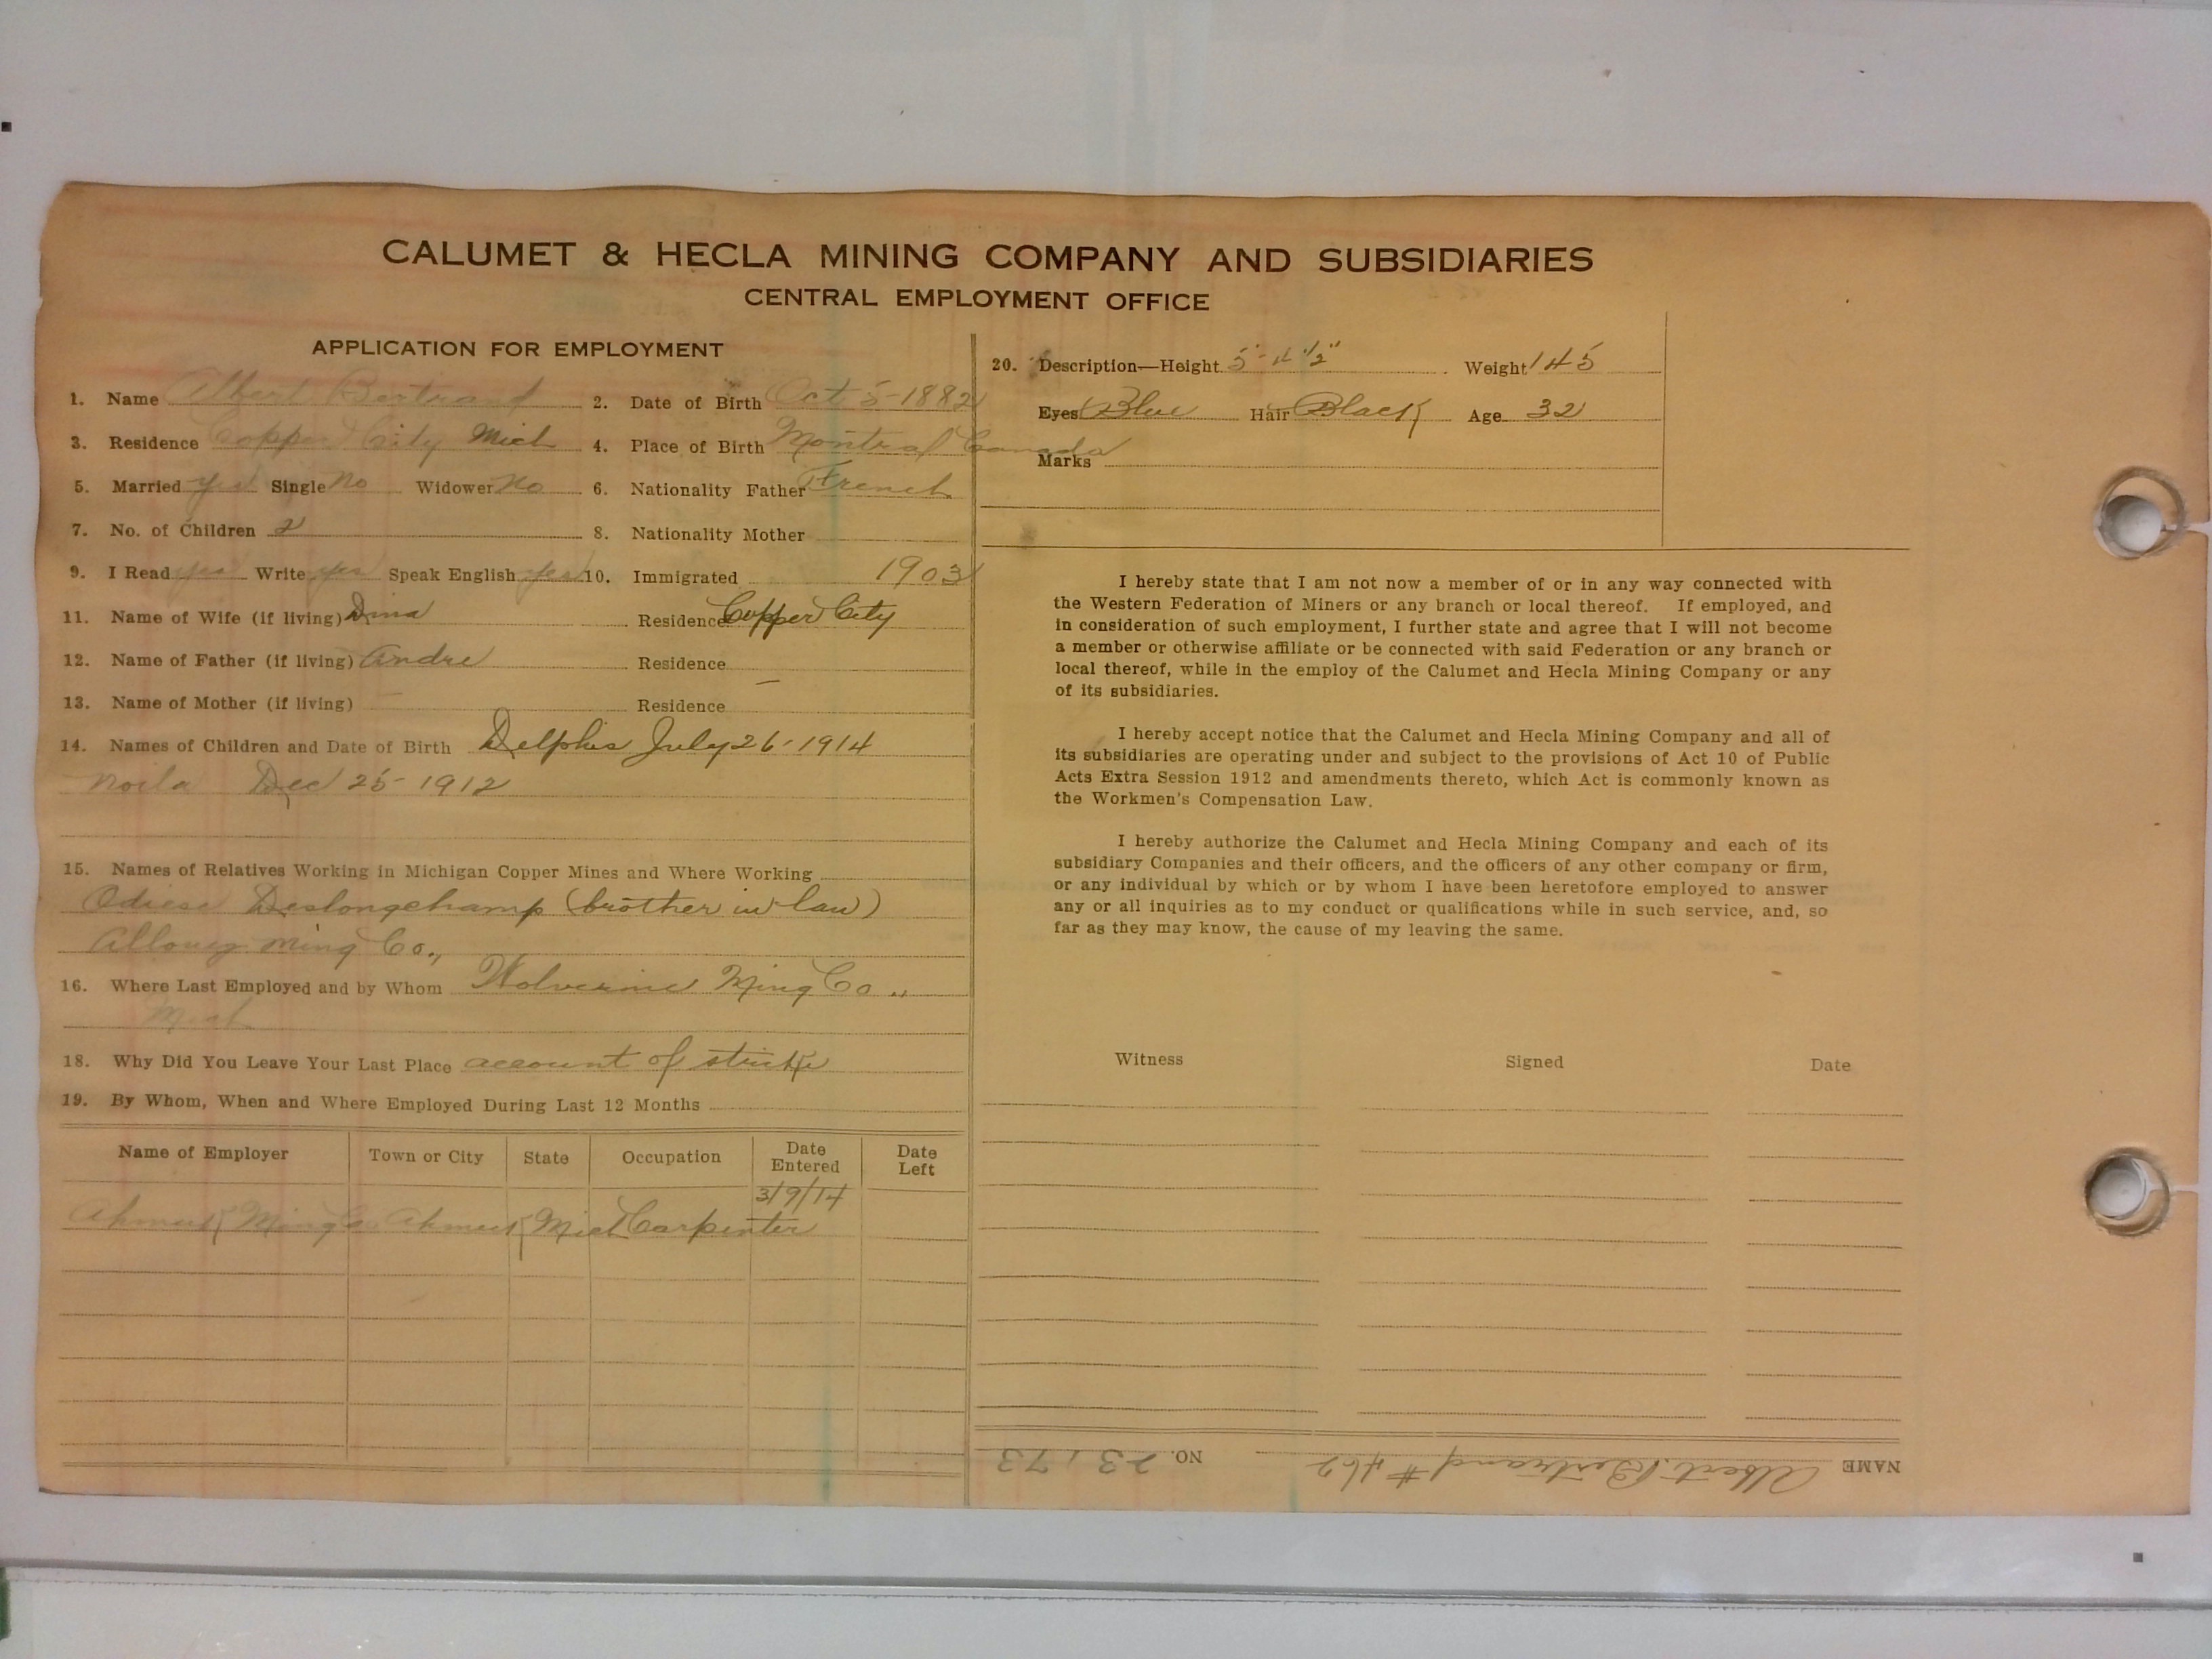 CALUMET & HECLA MINING COMPANY AND SUBSIDIARIES
CENTRAL EMPLOYMENT OFFICE
APPLICATION FOR EMPLOYMENT
1. Name Albert Bertrand 2. Date of Birth Oct 5-1882
3. Residence Copper City Mich 4. Place of Birth Montral Canada
5. Married yes Single No Widower No 6. Nationality Father French
7. No. of Children 2 8. Nationality Mother
9. I Read yes Write yes Speak English yes 10. Immigrated 1903
11. Name of Wife (if living) Dina Residence Copper City
12. Name of Father (if living) Andre Residence
13. Name of Mother (if living) — Residence —
14. Names of Children and Date of Birth Delphis July 26-1914
Noila Dec 25-1912
15. Names of Relatives Working in Michigan Copper Mines and Where Working
Deslongchamp (brother in law)
Allouez Ming Co.,
16. Where Last Employed and by Whom Wolverine Ming Co.,
Mich
18. Why Did You Leave Your Last Place account of strike
19. By Whom, When and Where Employed During Last 12 Months
Name of Employer Town or City State Occupation Date Entered Date Left
3/9/14
Ahmeek Ming Co Ahmeek Mich Carpenter
20. Description—Height 5'-4 1/2" Weight 145
Eyes Blue Hair Black Age 32
Marks
I hereby state that I am not now a member of or in any way connected with
the Western Federation of Miners or any branch or local thereof. If employed, and
in consideration of such employment, I further state and agree that I will not become
a member or otherwise affiliate or be connected with said Federation or any branch or
local thereof, while in the employ of the Calumet and Hecla Mining Company or any
of its subsidiaries.
I hereby accept notice that the Calumet and Hecla Mining Company and all of
its subsidiaries are operating under and subject to the provisions of Act 10 of Public
Acts Extra Session 1912 and amendments thereto, which Act is commonly known as
the Workmen's Compensation Law.
I hereby authorize the Calumet and Hecla Mining Company and each of its
subsidiary Companies and their officers, and the officers of any other company or firm,
or any individual by which or by whom I have been heretofore employed to answer
any or all inquiries as to my conduct or qualifications while in such service, and, so
far as they may know, the cause of my leaving the same.
Witness Signed Date
NAME Albert Bertrand #462 NO. 23173